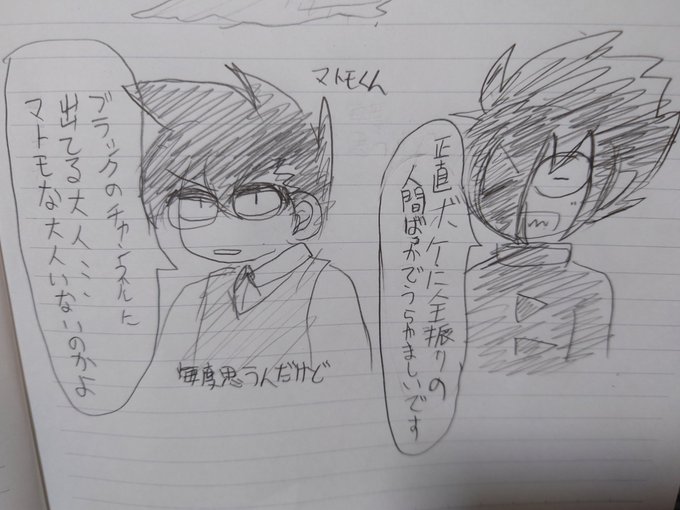 マトモくん
正直ボケに全振りの
人間ばっかでうらやましいです
ブラックのチャンネルに
出てる大人
マトモな大人いないのかよ
毎度思うんだけど